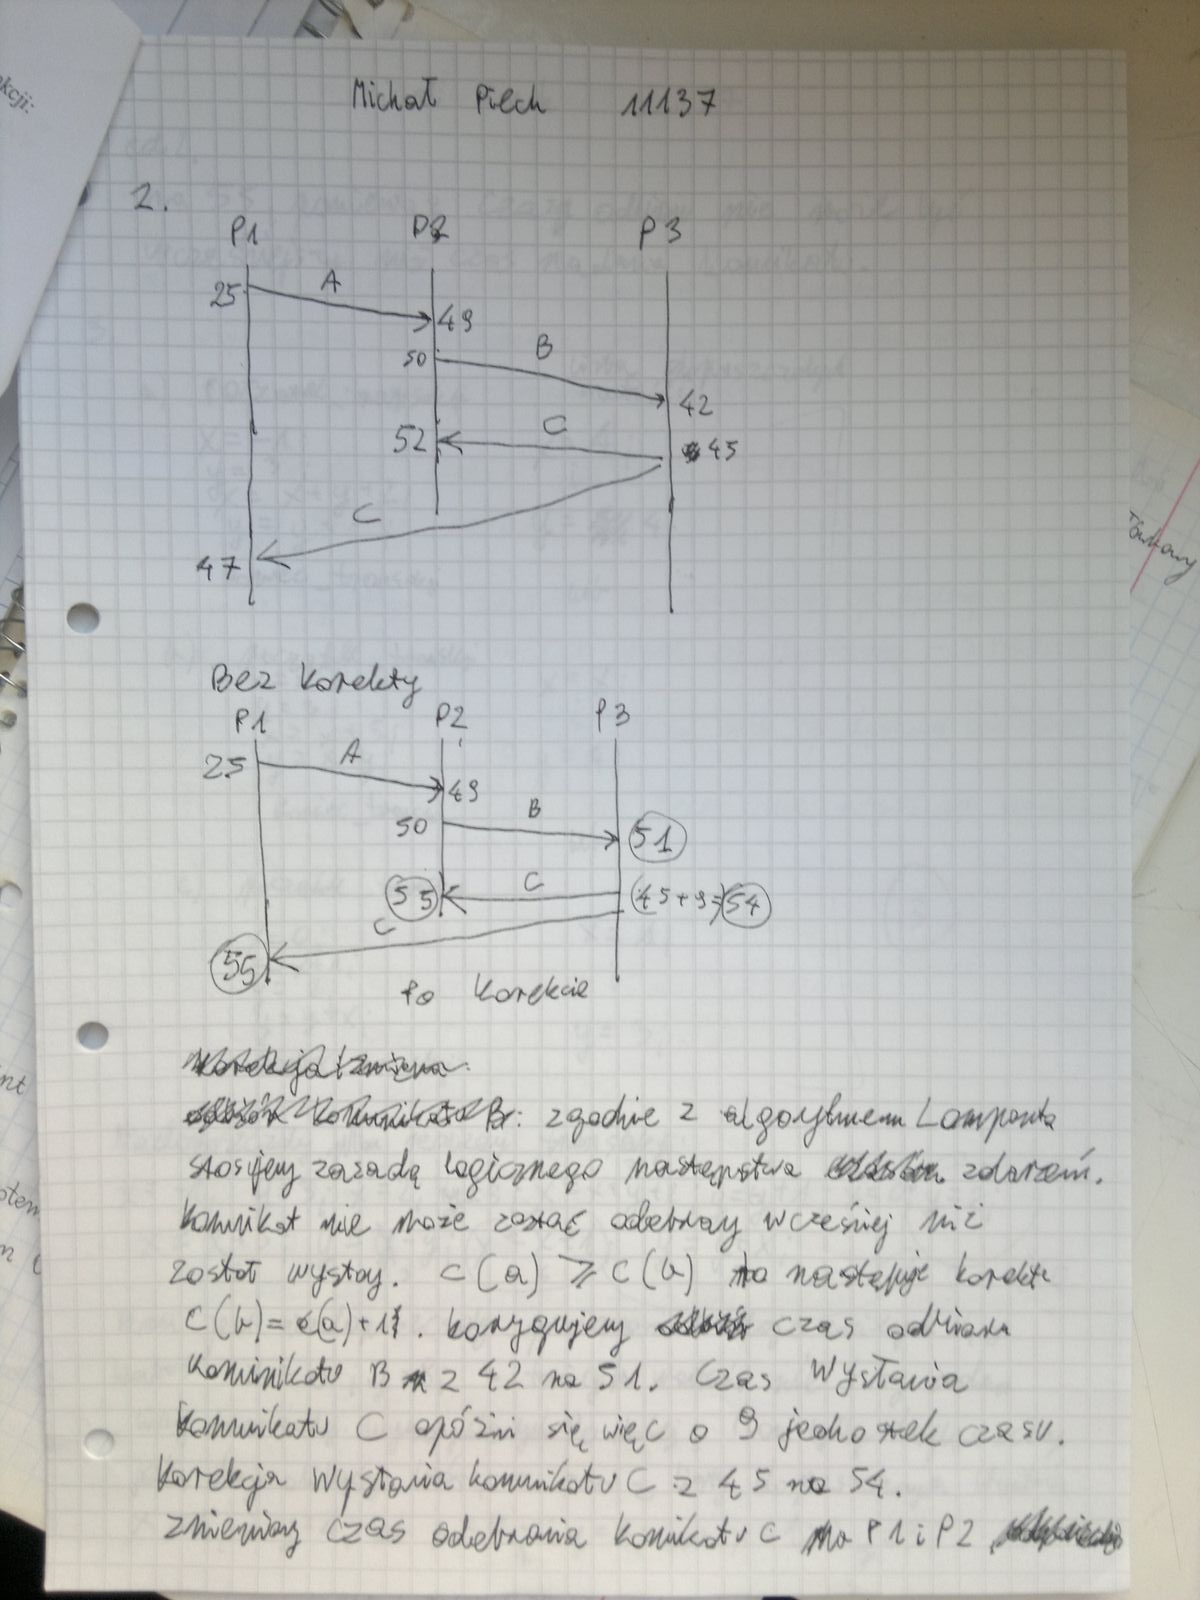 kcji:
Michał Piech 11137
2.
P1 P2 P3
25 A 49
50 B 42
52 C 45
C
47
Bez korekty
P1 P2 P3
25 A 49
50 B 51
55 C (45+9=)54
C
55
Po korekcie
B: zgodnie z algorytmem Lamporta
stosujemy zasadą logicznego następstwa zdarzeń.
Komunikat nie może zostać odebrany wcześniej niż
został wysłany. C(a) ⩾ C(b) to następuje korekta
C(b)=C(a)+1. korygujemy czas odbioru
komunikatu B z 42 na 51. Czas wysłania
komunikatu C opóźni się więc o 9 jednostek czasu.
Korekcja wysłania komunikatu C z 45 na 54.
zmieniamy czas odebrania komunikatu C na P1 i P2